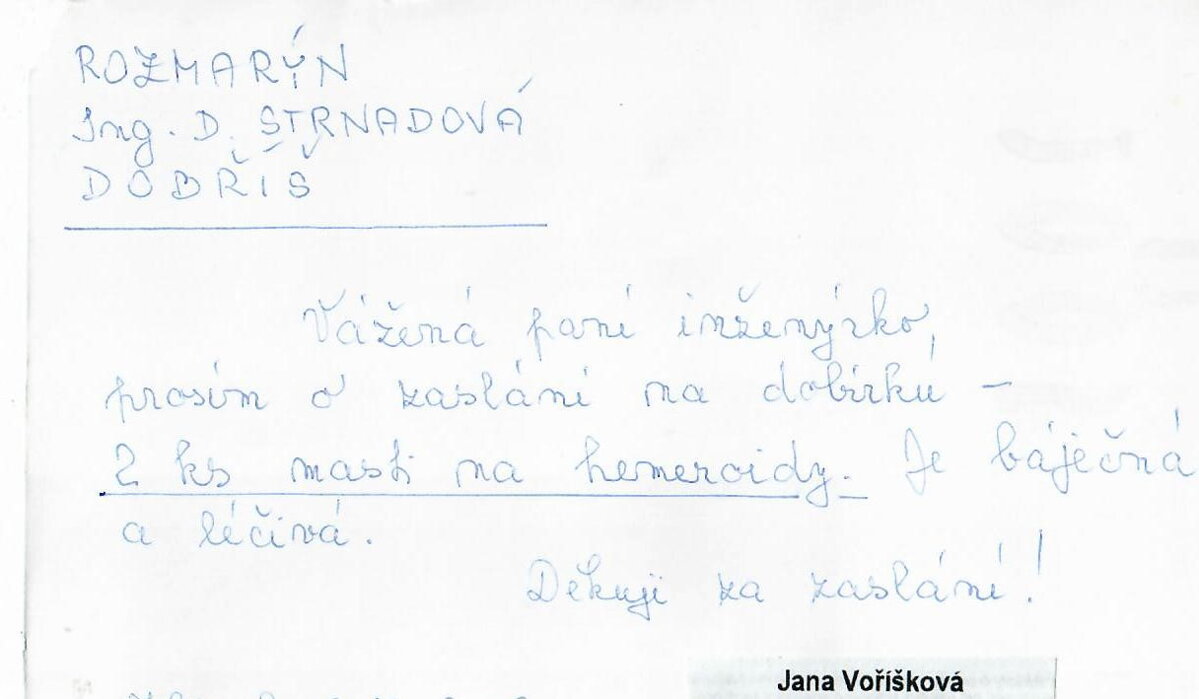 ROZMARÝN
Ing. D. STRNADOVÁ
DOBŘÍŠ
Vážená paní inženýrko,
prosím o zaslání na dobírku –
2 ks masti na hemeroidy. Je báječná
a léčivá.
Děkuji za zaslání!
Jana Voříšková